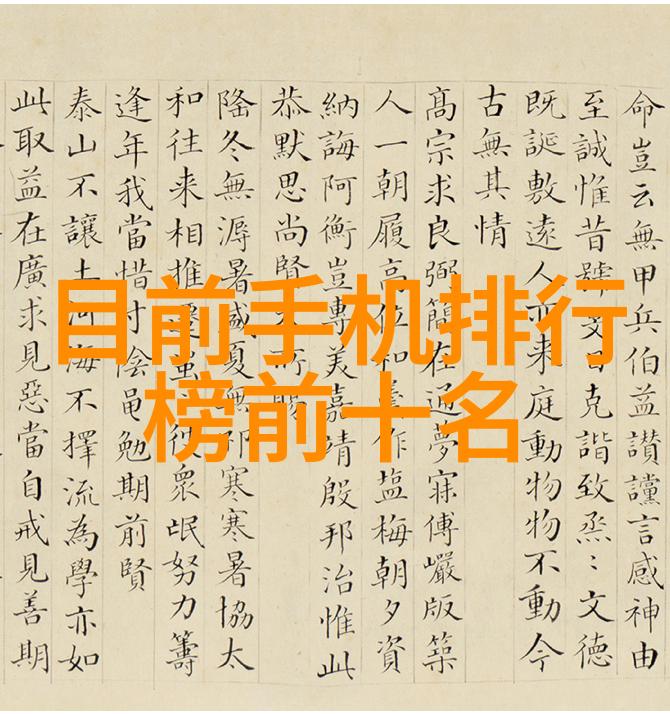 目前手机排行
榜前十名
命豈云無甲兵伯益讃讜言感神由
至誠惟昔號旻日克諧致烝〻文德
既誕敷遠人亦来庭動物物不動今
古無其情
髙宗求良弼簡在通夢寐傅嚴版築
人一朝履高位和羹作塩梅朝夕資
納誨阿衡豈專美嘉靖殷邦治惟此
恭默思尚賢天所賜
隆冬無溽暑盛夏無祁寒寒暑協太
和往来相推遷彼衆氓努力籌
逢年我當惜寸陰黽勉期前賢
泰山不讓土河海不擇流為學亦如
此取益在廣求見惡當自戒見善期